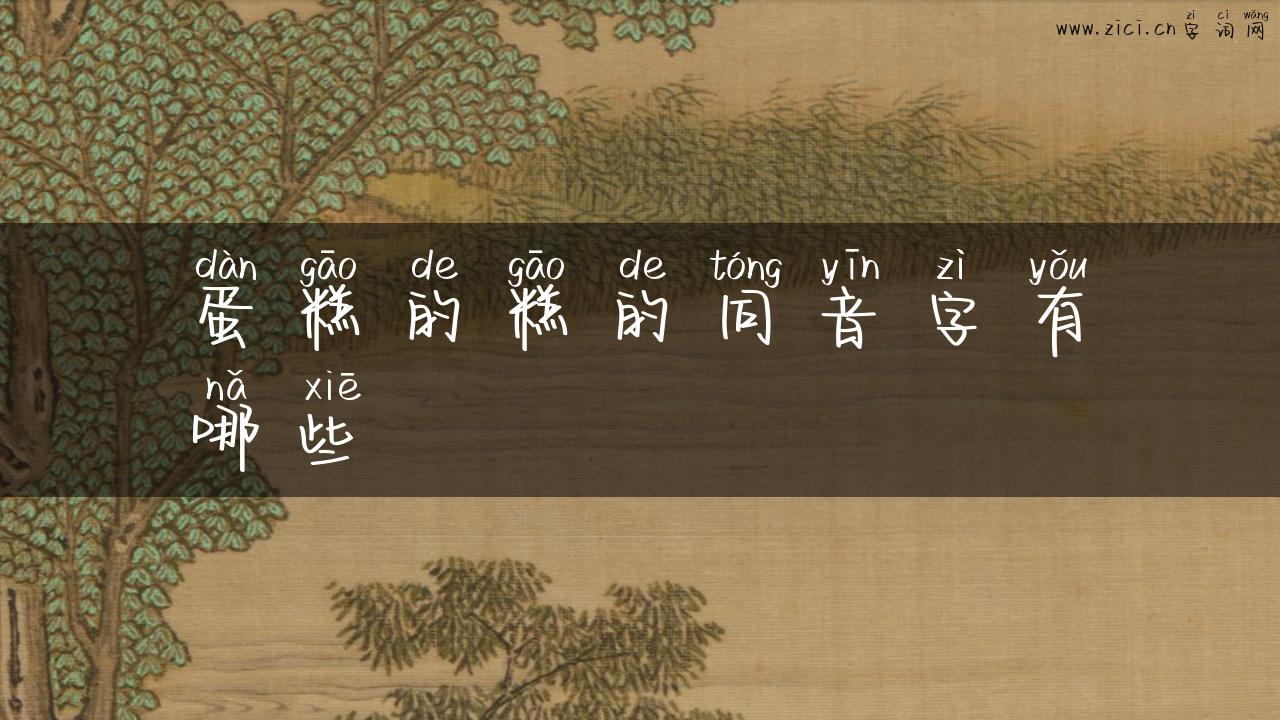 zì cí wǎng
www.zici.cn字词网
dàn gāo de gāo de tóng yīn zì yǒu
蛋糕的糕的同音字有
nǎ xiē
哪些